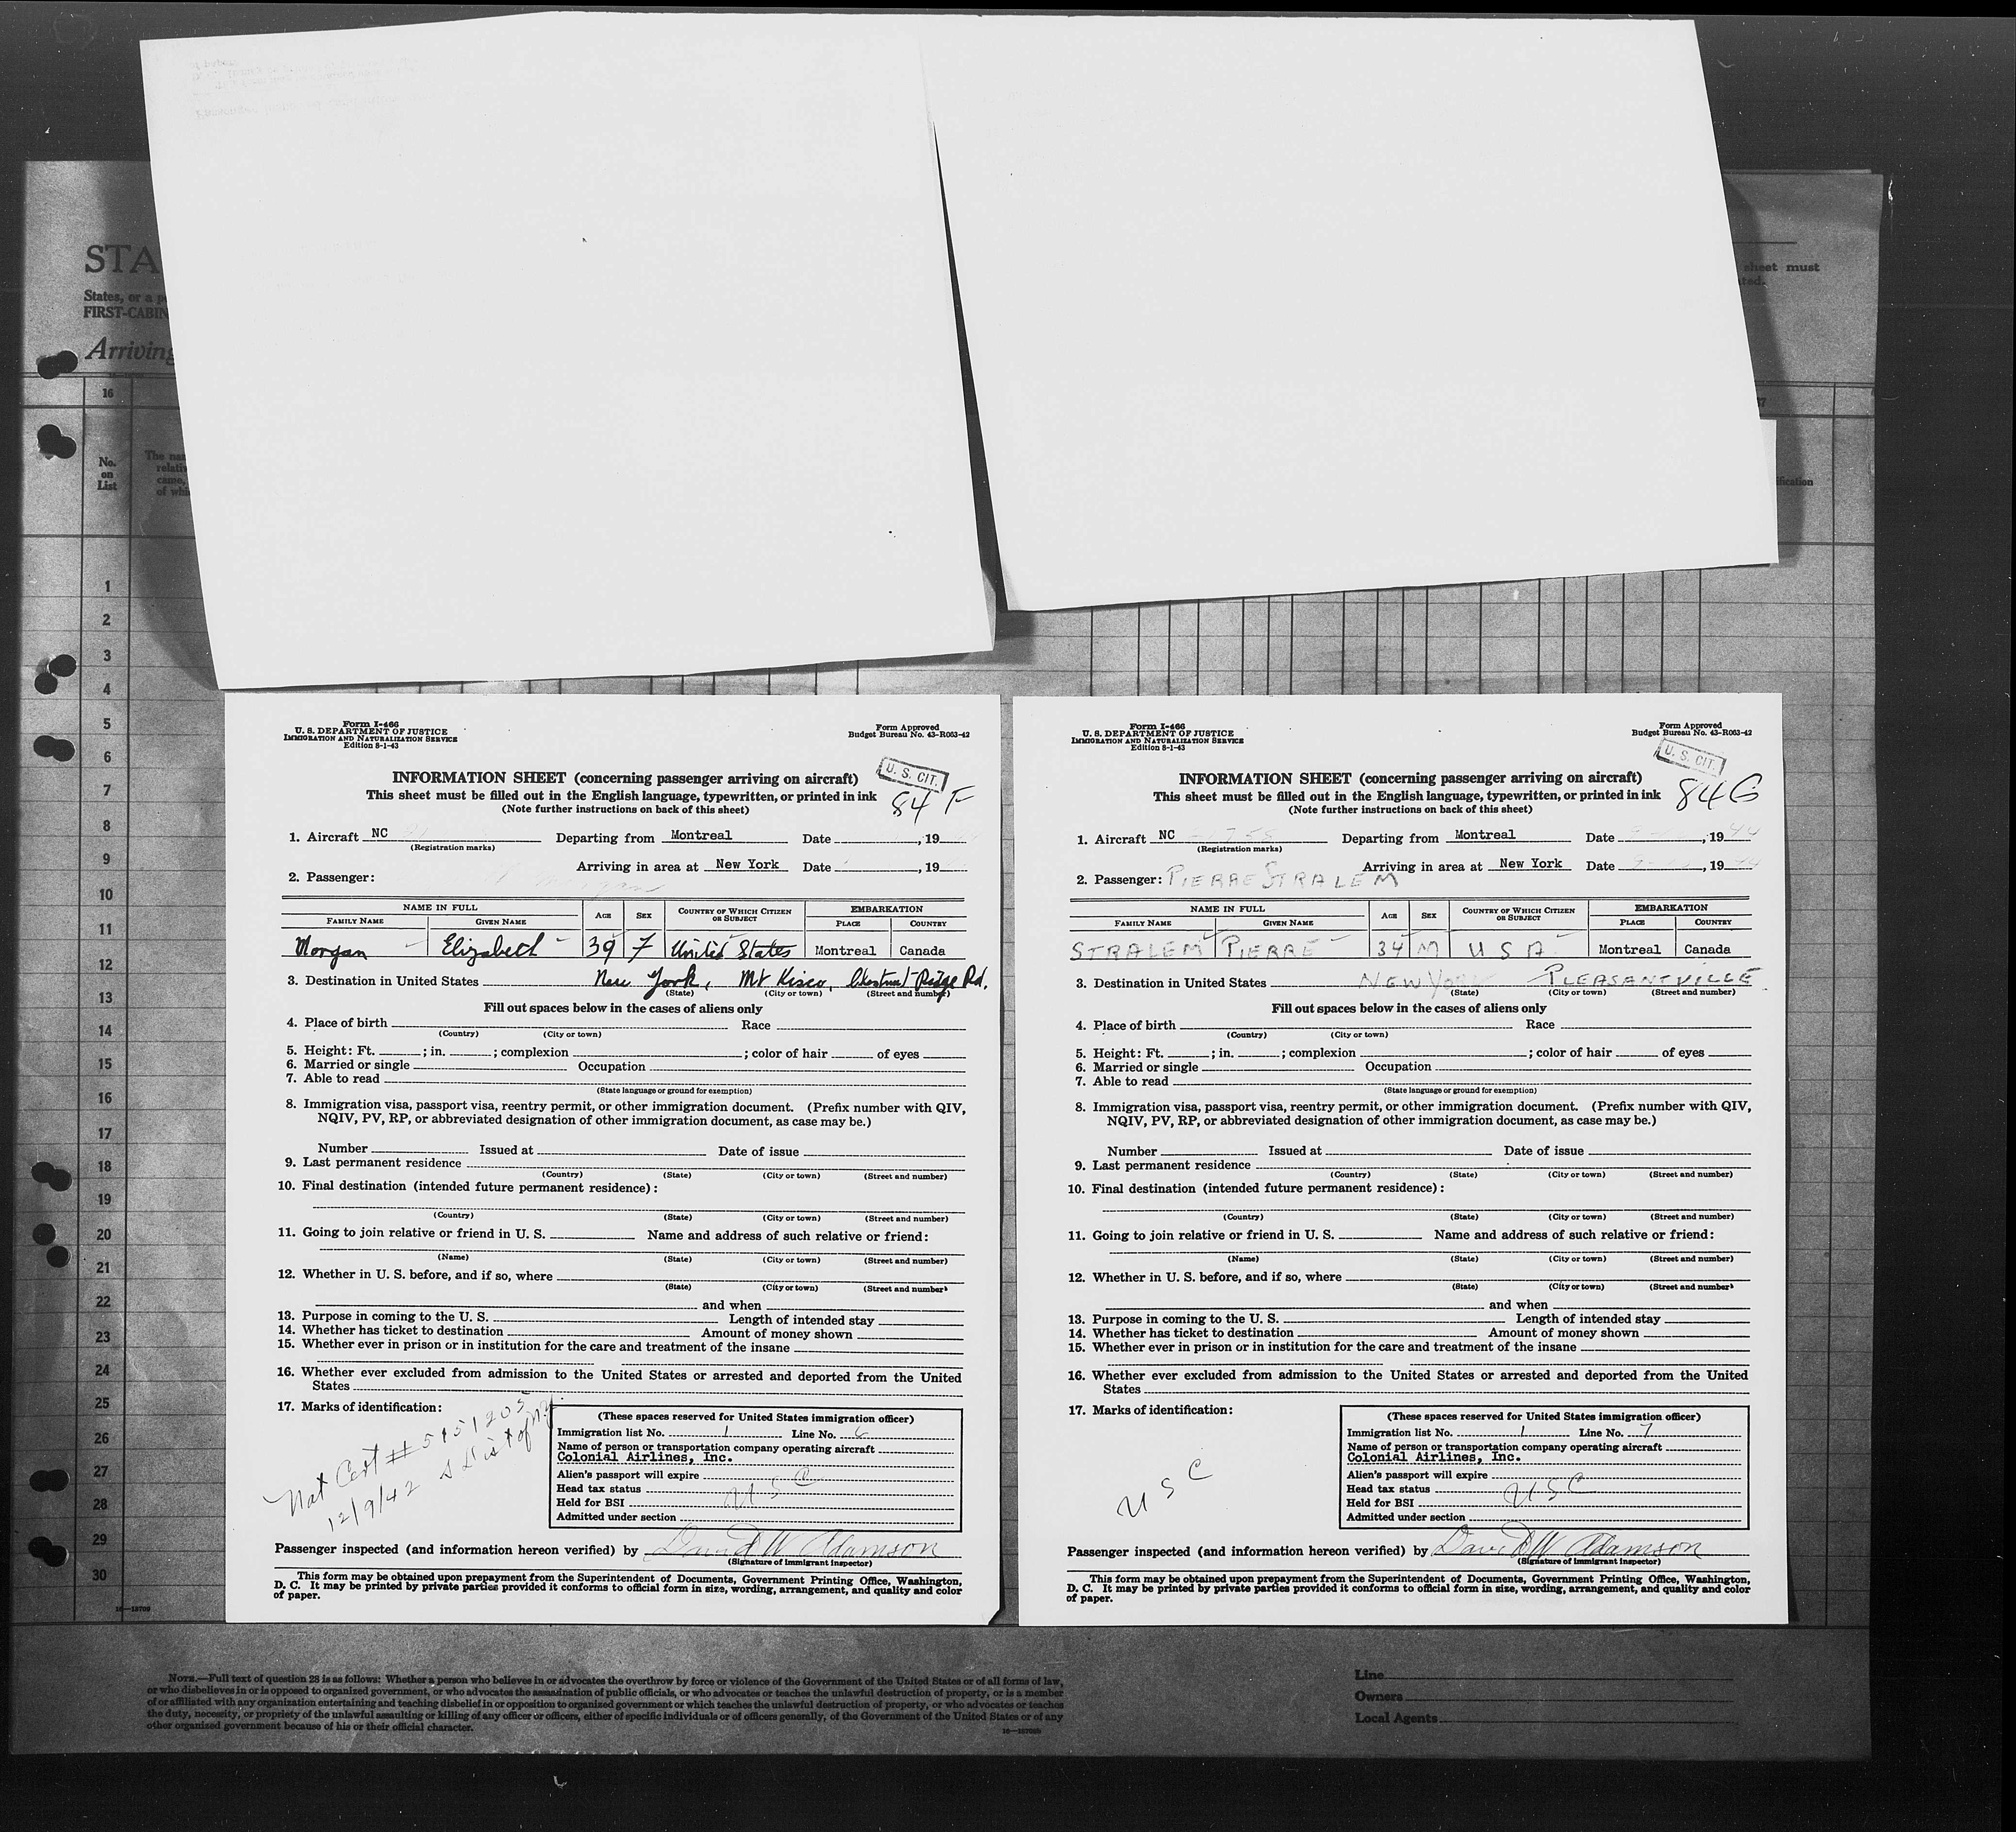 STA
States, or a p
FIRST-CABIN
Arriving
sheet must
ted.
16
No.
on
List
The na
relativ
came,
of whi
ification
1
2
3
4
5
6
7
8
9
10
11
12
13
14
15
16
17
18
19
20
21
22
23
24
25
26
27
28
29
30
16—13709
Form I-466
U. S. DEPARTMENT OF JUSTICE
IMMIGRATION AND NATURALIZATION SERVICE
Edition 8-1-43
Form Approved
Budget Bureau No. 43-R063-42
U. S. CIT.
84 F
INFORMATION SHEET (concerning passenger arriving on aircraft)
This sheet must be filled out in the English language, typewritten, or printed in ink
(Note further instructions on back of this sheet)
1. Aircraft NC Departing from Montreal Date , 19
(Registration marks)
Arriving in area at New York Date , 19
2. Passenger:
NAME IN FULL AGE SEX COUNTRY OF WHICH CITIZEN OR SUBJECT EMBARKATION
FAMILY NAME GIVEN NAME PLACE COUNTRY
Morgan Elizabeth 39 F United States Montreal Canada
3. Destination in United States New York, Mt Kisco, Chestnut Ridge Rd.
(State) (City or town) (Street and number)
Fill out spaces below in the cases of aliens only
4. Place of birth Race
(Country) (City or town)
5. Height: Ft. ; in. ; complexion ; color of hair of eyes
6. Married or single Occupation
7. Able to read
(State language or ground for exemption)
8. Immigration visa, passport visa, reentry permit, or other immigration document. (Prefix number with QIV,
NQIV, PV, RP, or abbreviated designation of other immigration document, as case may be.)
Number Issued at Date of issue
9. Last permanent residence
(Country) (State) (City or town) (Street and number)
10. Final destination (intended future permanent residence):
(Country) (State) (City or town) (Street and number)
11. Going to join relative or friend in U. S. Name and address of such relative or friend:
(Name) (State) (City or town) (Street and number)
12. Whether in U. S. before, and if so, where
(State) (City or town) (Street and number)
and when
13. Purpose in coming to the U. S. Length of intended stay
14. Whether has ticket to destination Amount of money shown
15. Whether ever in prison or in institution for the care and treatment of the insane
16. Whether ever excluded from admission to the United States or arrested and deported from the United
States
17. Marks of identification:
Nat Cert # 5151205
12/9/42 S Dist of NY.
(These spaces reserved for United States immigration officer)
Immigration list No. 1 Line No. 6
Name of person or transportation company operating aircraft
Colonial Airlines, Inc.
Alien's passport will expire
Head tax status
Held for BSI USC
Admitted under section
Passenger inspected (and information hereon verified) by David W Adamson
(Signature of immigrant inspector)
This form may be obtained upon prepayment from the Superintendent of Documents, Government Printing Office, Washington,
D. C. It may be printed by private parties provided it conforms to official form in size, wording, arrangement, and quality and color
of paper.
Form I-466
U. S. DEPARTMENT OF JUSTICE
IMMIGRATION AND NATURALIZATION SERVICE
Edition 8-1-43
Form Approved
Budget Bureau No. 43-R063-42
U. S. CIT.
84G
INFORMATION SHEET (concerning passenger arriving on aircraft)
This sheet must be filled out in the English language, typewritten, or printed in ink
(Note further instructions on back of this sheet)
1. Aircraft NC Departing from Montreal Date , 1944
(Registration marks)
Arriving in area at New York Date , 1944
2. Passenger: PIERRE STRALEM
NAME IN FULL AGE SEX COUNTRY OF WHICH CITIZEN OR SUBJECT EMBARKATION
FAMILY NAME GIVEN NAME PLACE COUNTRY
STRALEM PIERRE 34 M USA Montreal Canada
3. Destination in United States NEW YORK PLEASANTVILLE
(State) (City or town) (Street and number)
Fill out spaces below in the cases of aliens only
4. Place of birth Race
(Country) (City or town)
5. Height: Ft. ; in. ; complexion ; color of hair of eyes
6. Married or single Occupation
7. Able to read
(State language or ground for exemption)
8. Immigration visa, passport visa, reentry permit, or other immigration document. (Prefix number with QIV,
NQIV, PV, RP, or abbreviated designation of other immigration document, as case may be.)
Number Issued at Date of issue
9. Last permanent residence
(Country) (State) (City or town) (Street and number)
10. Final destination (intended future permanent residence):
(Country) (State) (City or town) (Street and number)
11. Going to join relative or friend in U. S. Name and address of such relative or friend:
(Name) (State) (City or town) (Street and number)
12. Whether in U. S. before, and if so, where
(State) (City or town) (Street and number)
and when
13. Purpose in coming to the U. S. Length of intended stay
14. Whether has ticket to destination Amount of money shown
15. Whether ever in prison or in institution for the care and treatment of the insane
16. Whether ever excluded from admission to the United States or arrested and deported from the United
States
17. Marks of identification:
USC
(These spaces reserved for United States immigration officer)
Immigration list No. 1 Line No. 7
Name of person or transportation company operating aircraft
Colonial Airlines, Inc.
Alien's passport will expire
Head tax status
Held for BSI USC
Admitted under section
Passenger inspected (and information hereon verified) by David W Adamson
(Signature of immigrant inspector)
This form may be obtained upon prepayment from the Superintendent of Documents, Government Printing Office, Washington,
D. C. It may be printed by private parties provided it conforms to official form in size, wording, arrangement, and quality and color
of paper.
NOTE.—Full text of question 28 is as follows: Whether a person who believes in or advocates the overthrow by force or violence of the Government of the United States or of all forms of law,
or who disbelieves in or is opposed to organized government, or who advocates the assassination of public officials, or who advocates or teaches the unlawful destruction of property, or is a member
of or affiliated with any organization entertaining and teaching disbelief in or opposition to organized government or which teaches the unlawful destruction of property, or who advocates or teaches
the duty, necessity, or propriety of the unlawful assaulting or killing of any officer or officers, either of specific individuals or of officers generally, of the Government of the United States or of any
other organized government because of his or their official character.
Line
Owners
Local Agents